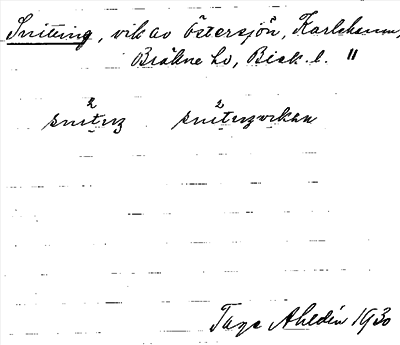 Sniting, vik av Östersjön, Karlshamn,
Bräkne hd, Blek. l. "
2 2
snitıŋ snitıŋvikan
Tage Ahldén 1930